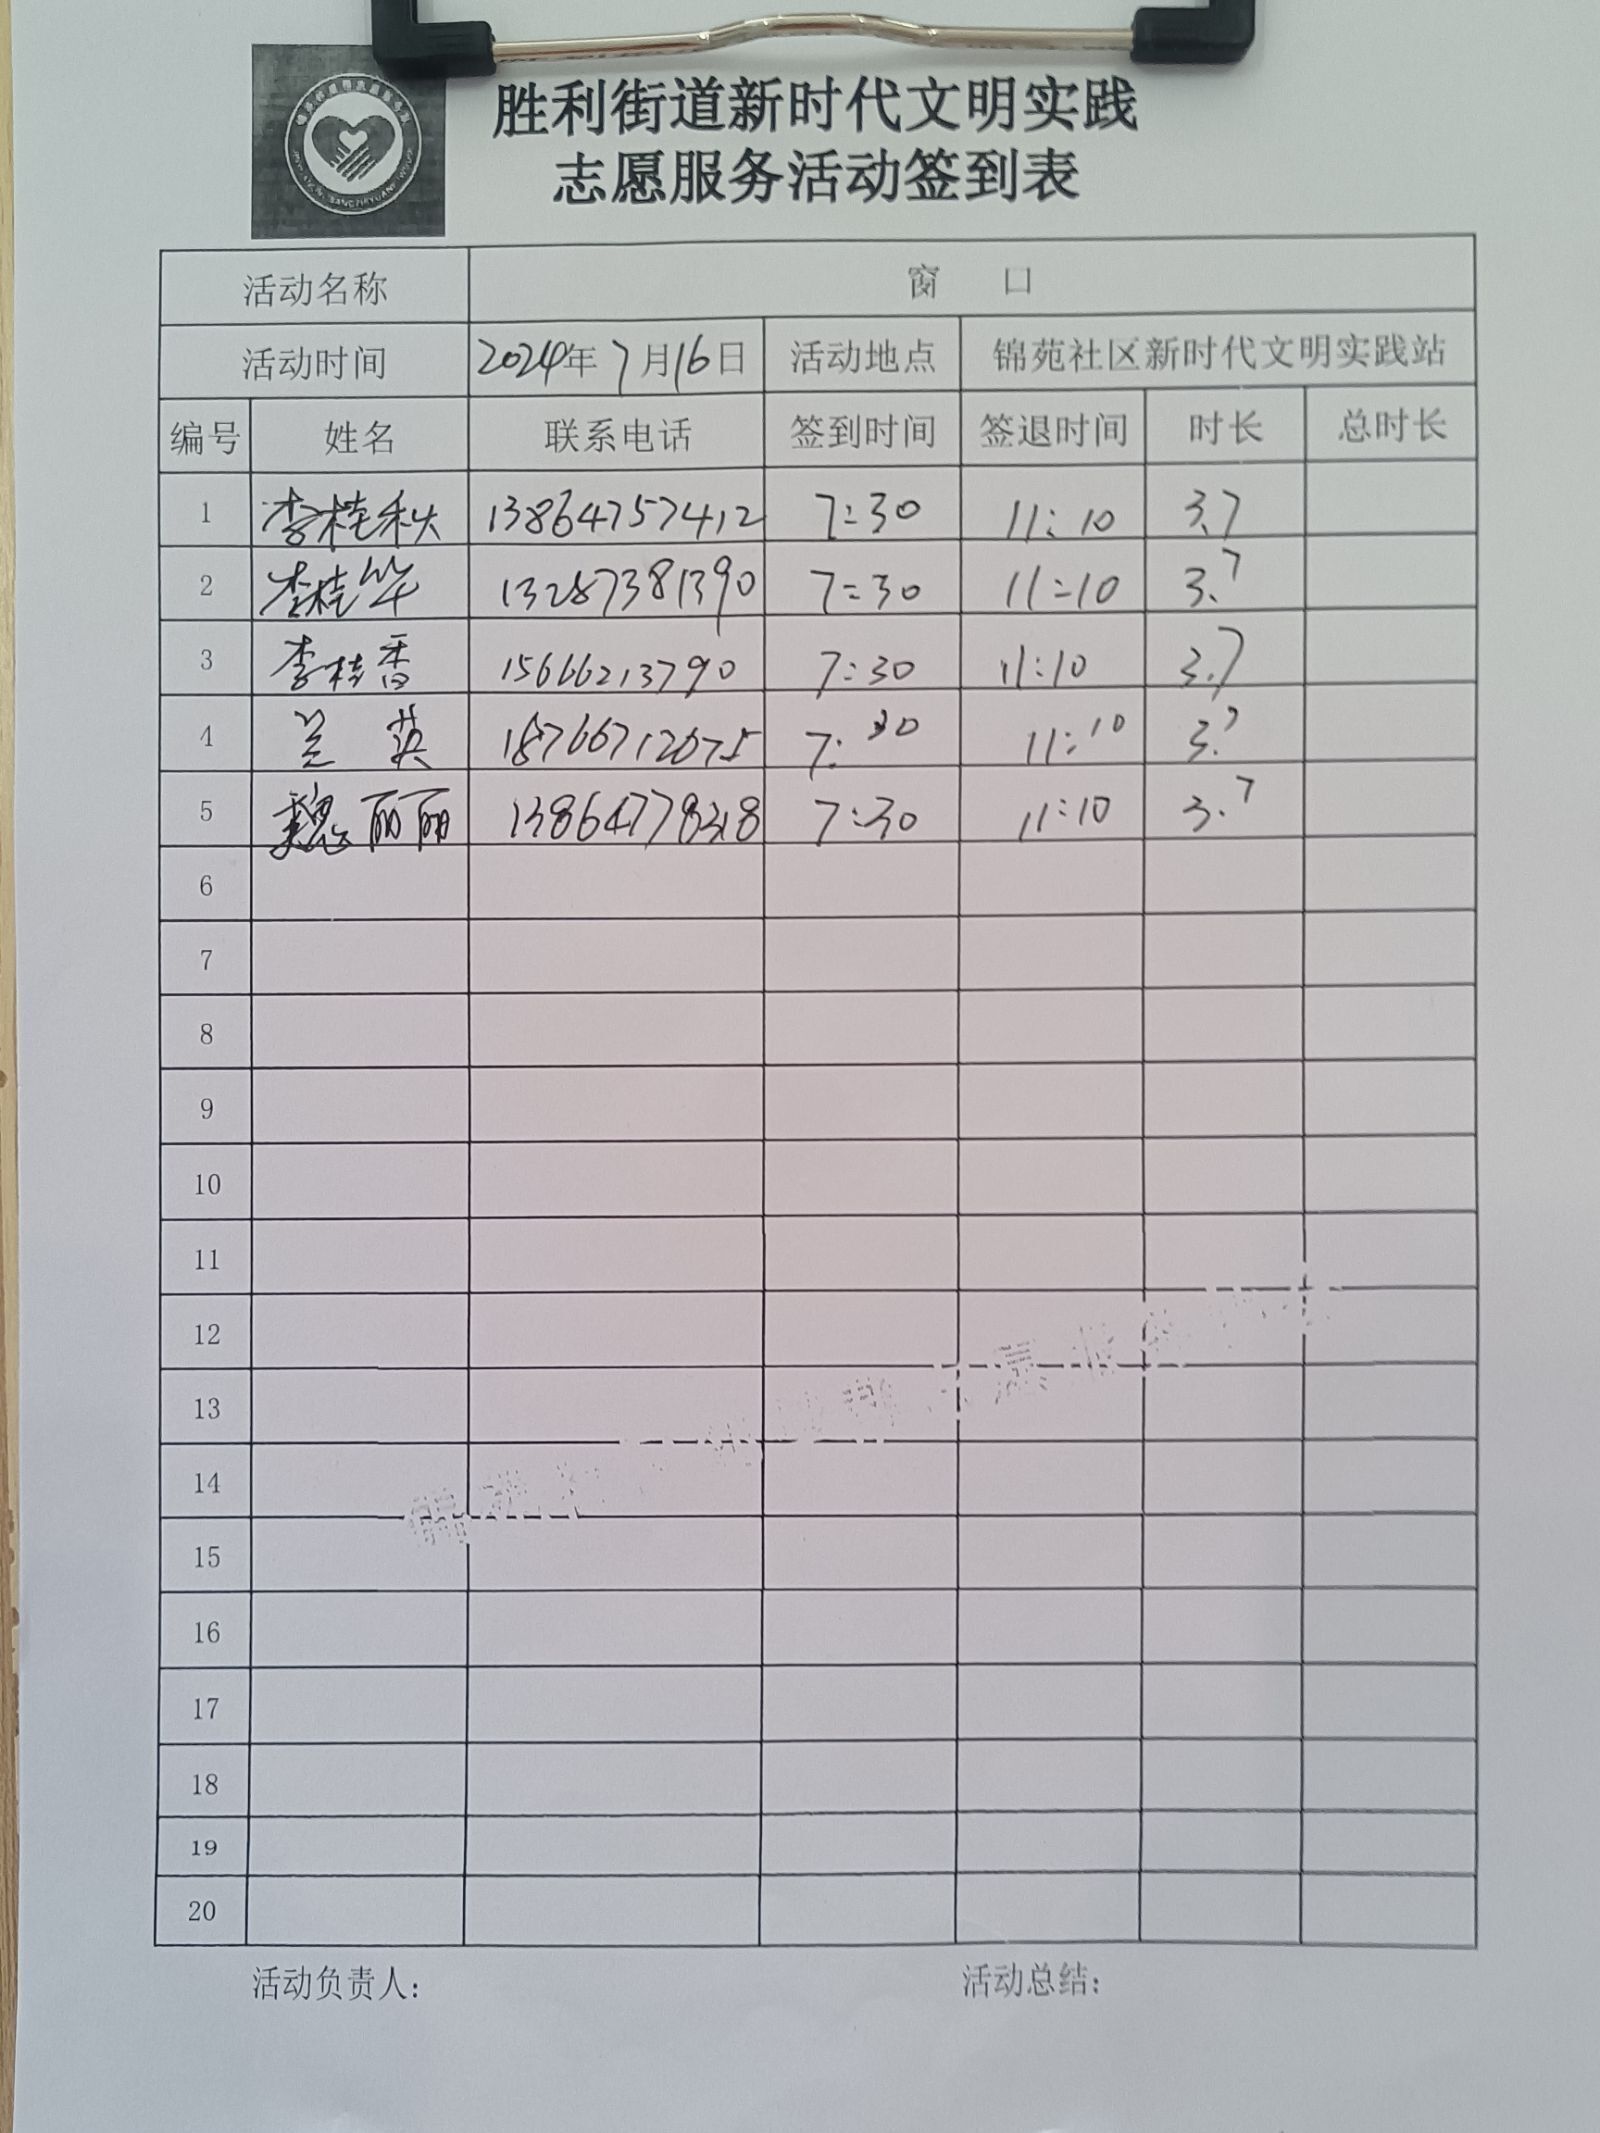 胜利街道新时代文明实践
志愿服务活动签到表
活动名称 窗 口
活动时间 2024年7月16日 活动地点 锦苑社区新时代文明实践站
编号 姓名 联系电话 签到时间 签退时间 时长 总时长
1 李桂秋 13864757412 7:30 11:10 3.7
2 李桂华 13287381390 7:30 11:10 3.7
3 李桂香 15666213790 7:30 11:10 3.7
4 兰英 18766712675 7:30 11:10 3.7
5 魏丽丽 13864778318 7:30 11:10 3.7
6
7
8
9
10
11
12
13
14
15
16
17
18
19
20
活动负责人: 活动总结: